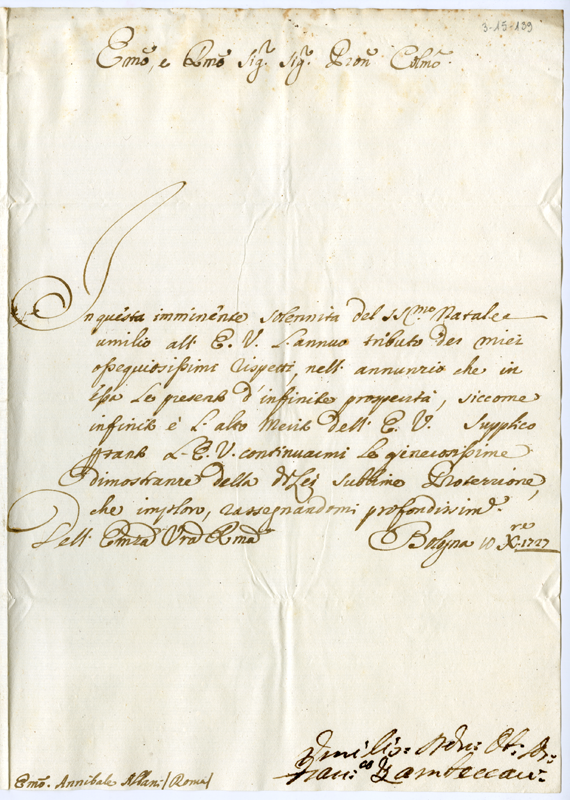 3-15-139
Emo, e Rmo Sig.r Sig.r Pron Colmo
In questa imminente solennita del SSmo Natale
umilio all' E. V. l'annuo tributo dei miei
ossequiosissimi rispetti, nell' annunzio che in
essa le presento d'infinite prosperità, siccome
infinito è l'alto Merito dell' E. V. Supplico
frants L'E. V. continuarmi le generosissime
dimostranze della di Lei sublime Protezione,
che imploro, rassegnandomi profondissim.e
Dell' Emza Vra Rma Bologna 10 Xbre 1727
Umilis: Ob:
Fran:co Zambeccari
Emo. Annibale Albani (Roma)